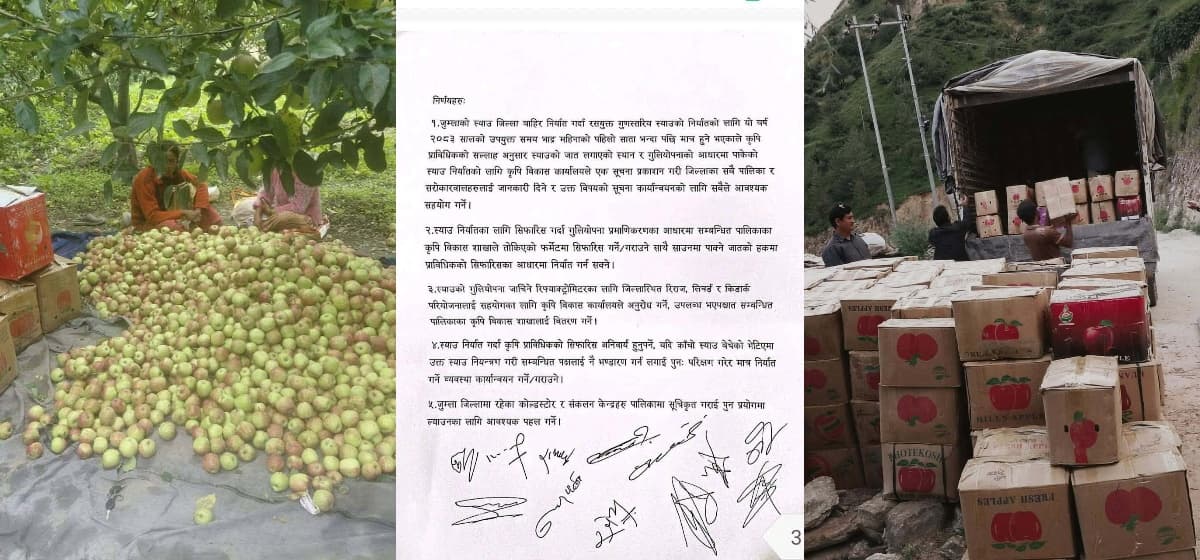 निर्णयहरुः
१.जुम्लाको स्याउ जिल्ला बाहिर निर्यात गर्दा रसयुक्त गुणस्तरिय स्याउको निर्यातको लागि यो वर्ष
२०८३ सालको उपयुक्त समय भाद्र महिनाको पहिलो साता भन्दा पछि मात्र हुने भएकाले कृषि
प्राविधिकको सल्लाह अनुसार स्याउको जात लगाएको स्थान र गुलियोपनाको आधारमा पाकेको
स्याउ निर्यातको लागि कृषि विकास कार्यालयले एक सूचना प्रकाशन गरी जिल्लाका सबै पालिका र
सरोकारवालहरुलाई जानकारी दिने र उक्त विषयको सूचना कार्यान्वयनको लागि सबैले आवश्यक
सहयोग गर्ने।
२.स्याउ निर्यातका लागि सिफारिस गर्दा गुलियोपना प्रमाणिकरणका आधारमा सम्बन्धित पालिकाका
कृषि विकास शाखाले तोकिएको फर्मेटमा सिफारिस गर्ने/गराउने साथै साउनमा पाक्ने जातको हकमा
प्राविधिकको सिफारिसका आधारमा निर्यात गर्न सक्ने।
३.स्याउको गुलियोपना जाँचिने रिफ्याक्ट्रोमिटरका लागि जिल्लास्थित रिराज, सिमर्ड र किडार्क
परियोजनालाई सहयोगका लागि कृषि विकास कार्यालयले अनुरोध गर्ने, उपलब्ध भएपश्चात सम्बन्धित
पालिकाका कृषि विकास शाखालाई वितरण गर्ने।
४.स्याउ निर्यात गर्दा कृषि प्राविधिकको सिफारिस अनिवार्य हुनुपर्ने, यदि काँचो स्याउ बेचेको भेटिएमा
उक्त स्याउ नियन्त्रण गरी सम्बन्धित पक्षलाई नै भण्डारण गर्न लगाई पुनः परिक्षण गरेर मात्र निर्यात
गर्ने व्यवस्था कार्यान्वयन गर्ने/गराउने।
५.जुम्ला जिल्लामा रहेका कोल्डस्टोर र संकलन केन्द्रहरु पालिकामा सूचिकृत गराई पुन प्रयोगमा
ल्याउनका लागि आवश्यक पहल गर्ने।
3
FRESH APPLES
HILLS APPLE
BHOTEKOSHI
FRESH APPLES